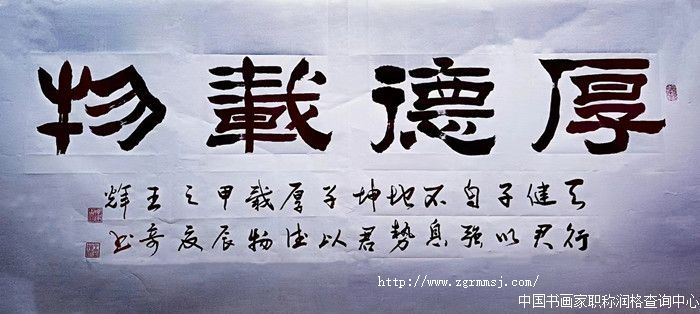 厚德載物
天行
健君
子以
自强
不息
地勢
坤君
子以
厚德
载物
甲辰
之夏
王奇
辉书
http://www.zgrmmsj.com/
中国书画家职称润格查询中心